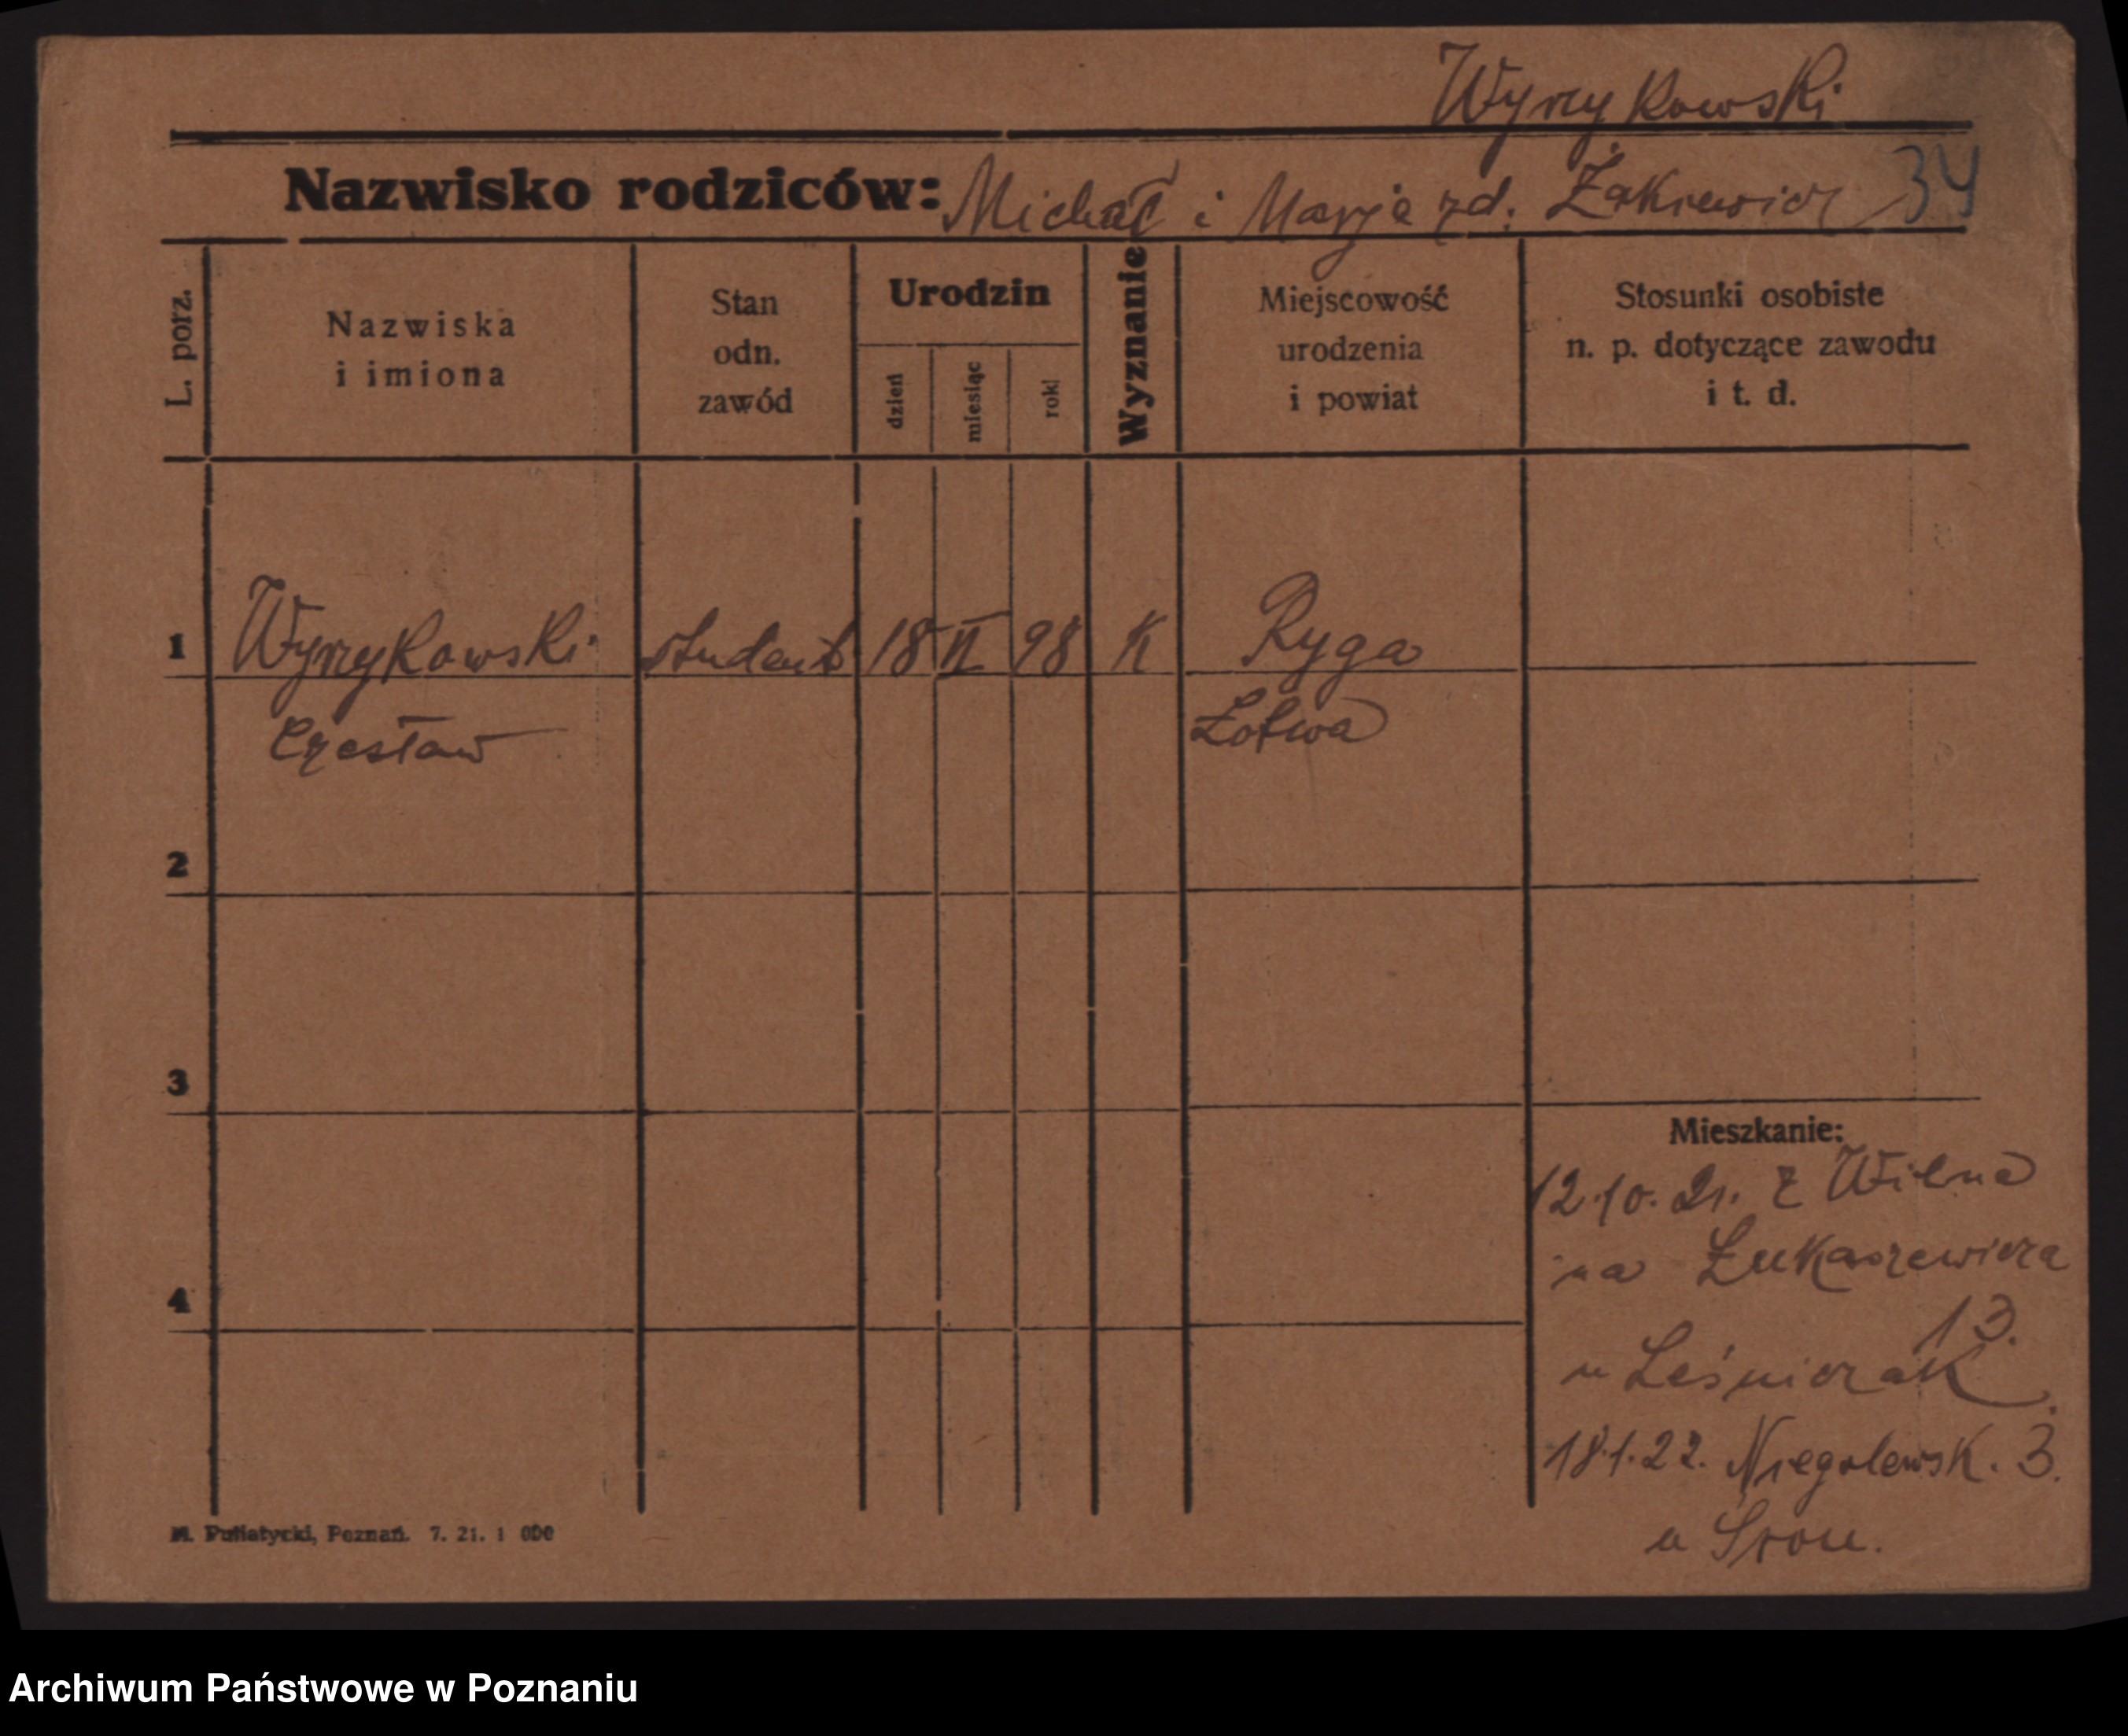 Wyrzykowski
Nazwisko rodziców: Michał i Marja zd. Żakiewicz 34
L. porz.
Nazwiska
i imiona
Stan
odn.
zawód
Urodzin
dzień
miesiąc
rok
Wyznanie
Miejscowość
urodzenia
i powiat
Stosunki osobiste
n. p. dotyczące zawodu
i t. d.
1 Wyrzykowski student 18 II 98 K Ryga
Czesław Łotwa
2
3
4
Mieszkanie:
12.10.21. z Wilna
na Łukaszewicza
13.
u Leśniczak
18.1.22. Niegolewsk. 3.
u
M. Putiatycki, Poznań. 7. 21. 1 000
Archiwum Państwowe w Poznaniu